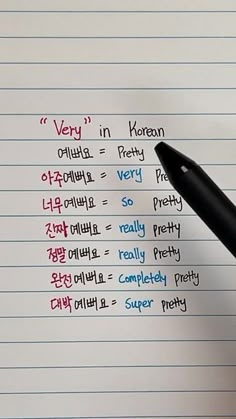 "Very" in Korean
예뻐요 = Pretty
아주예뻐요 = very
너무예뻐요 = so pretty
진짜예뻐요 = really pretty
정말예뻐요 = really pretty
완전예뻐요 = Completely pretty
대박예뻐요 = Super pretty